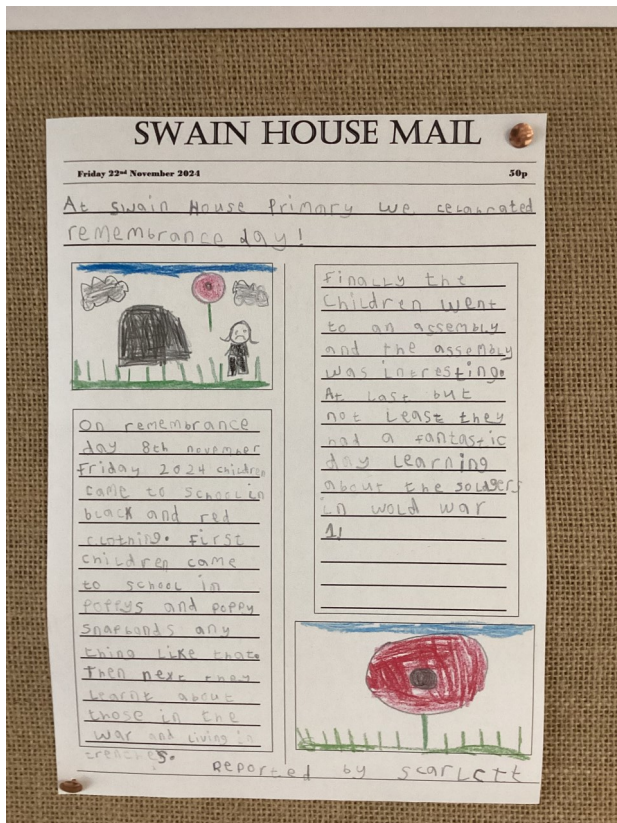 SWAIN HOUSE MAIL
Friday 22nd November 2024 50p
At swain House Primary we celabrated
remembrance day!
On remembrance
day 8th november
friday 2024 children
came to school in
black and red
clothing. First
children came
to school in
poppys and poppy
snapbonds any
thing like that.
Then next they
learnt about
those in the
war and living in
trenches.
Finally the
children went
to an assembly
and the assembly
was intresting.
At last but
not least they
had a fantastic
day learning
about the soldgers
in wold war
1,
Reported by scarlett